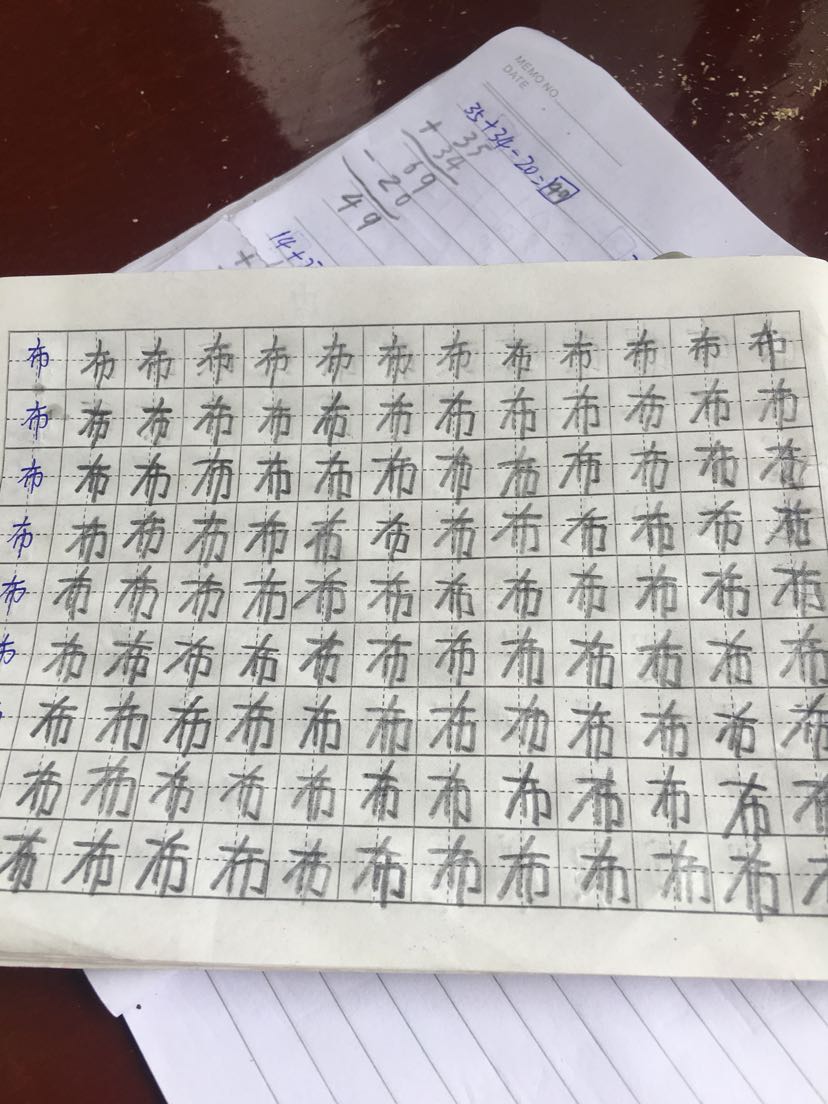 MEMO NO.
DATE
35+34-20=49
35
+ 34
69
- 20
49
14+
+
布 布 布 布 布 布 布 布 布 布 布 布 布
布 布 布 布 布 布 布 布 布 布 布 布 布
布 布 布 布 布 布 布 布 布 布 布 布 布
布 布 布 布 布 布 布 布 布 布 布 布 布
布 布 布 布 布 布 布 布 布 布 布 布 布
布 布 布 布 布 布 布 布 布 布 布 布 布
布 布 布 布 布 布 布 布 布 布 布 布
布 布 布 布 布 布 布 布 布 布 布 布
布 布 布 布 布 布 布 布 布 布 布